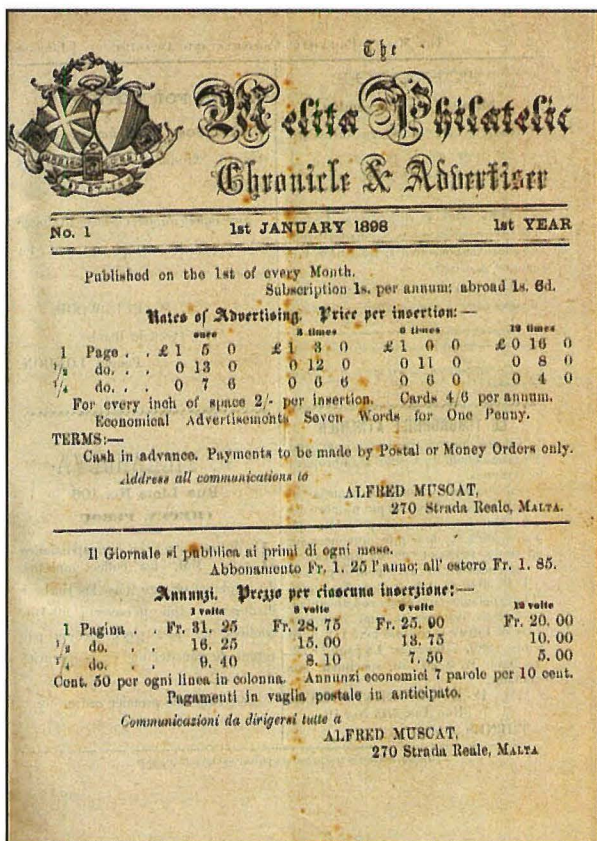 The
Melita Philatelic
Chronicle & Advertiser
No. 1 1st JANUARY 1898 1st YEAR
Published on the 1st of every Month.
Subscription 1s. per annum; abroad 1s. 6d.
Rates of Advertising. Price per insertion:—
once 3 times 6 times 12 times
1 Page . . £ 1 5 0 £ 1 3 0 £ 1 0 0 £ 0 16 0
1/2 do. . . 0 13 0 0 12 0 0 11 0 0 8 0
1/4 do. . . 0 7 6 0 6 6 0 6 0 0 4 0
For every inch of space 2/- per insertion. Cards 4/6 per annum.
Economical Advertisements Seven Words for One Penny.
TERMS:—
Cash in advance. Payments to be made by Postal or Money Orders only.
Address all communications to
ALFRED MUSCAT,
270 Strada Reale, MALTA.
Il Giornale si pubblica ai primi di ogni mese.
Abbonamento Fr. 1. 25 l'anno; all' estero Fr. 1. 85.
Annunzi. Prezzo per ciascuna inserzione:—
1 volta 3 volte 6 volte 12 volte
1 Pagina . . Fr. 31. 25 Fr. 28. 75 Fr. 25. 00 Fr. 20. 00
1/2 do. . . 16. 25 15. 00 13. 75 10. 00
1/4 do. . . 9. 40 8. 10 7. 50 5. 00
Cent. 50 per ogni linea in colonna. Annunzi economici 7 parole per 10 cent.
Pagamenti in vaglia postale in anticipato.
Communicazioni da dirigersi tutte a
ALFRED MUSCAT,
270 Strada Reale, MALTA